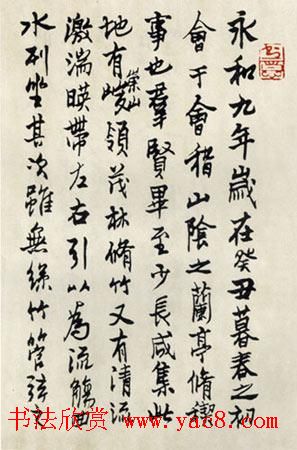 永和九年歲在癸丑暮春之初
會于會稽山陰之蘭亭脩禊
事也羣賢畢至少長咸集此
地有崇山峻領茂林脩竹又有清流
激湍暎帶左右引以為流觴曲
水列坐其次雖無絲竹管弦之
书法欣赏 www.yac8.com